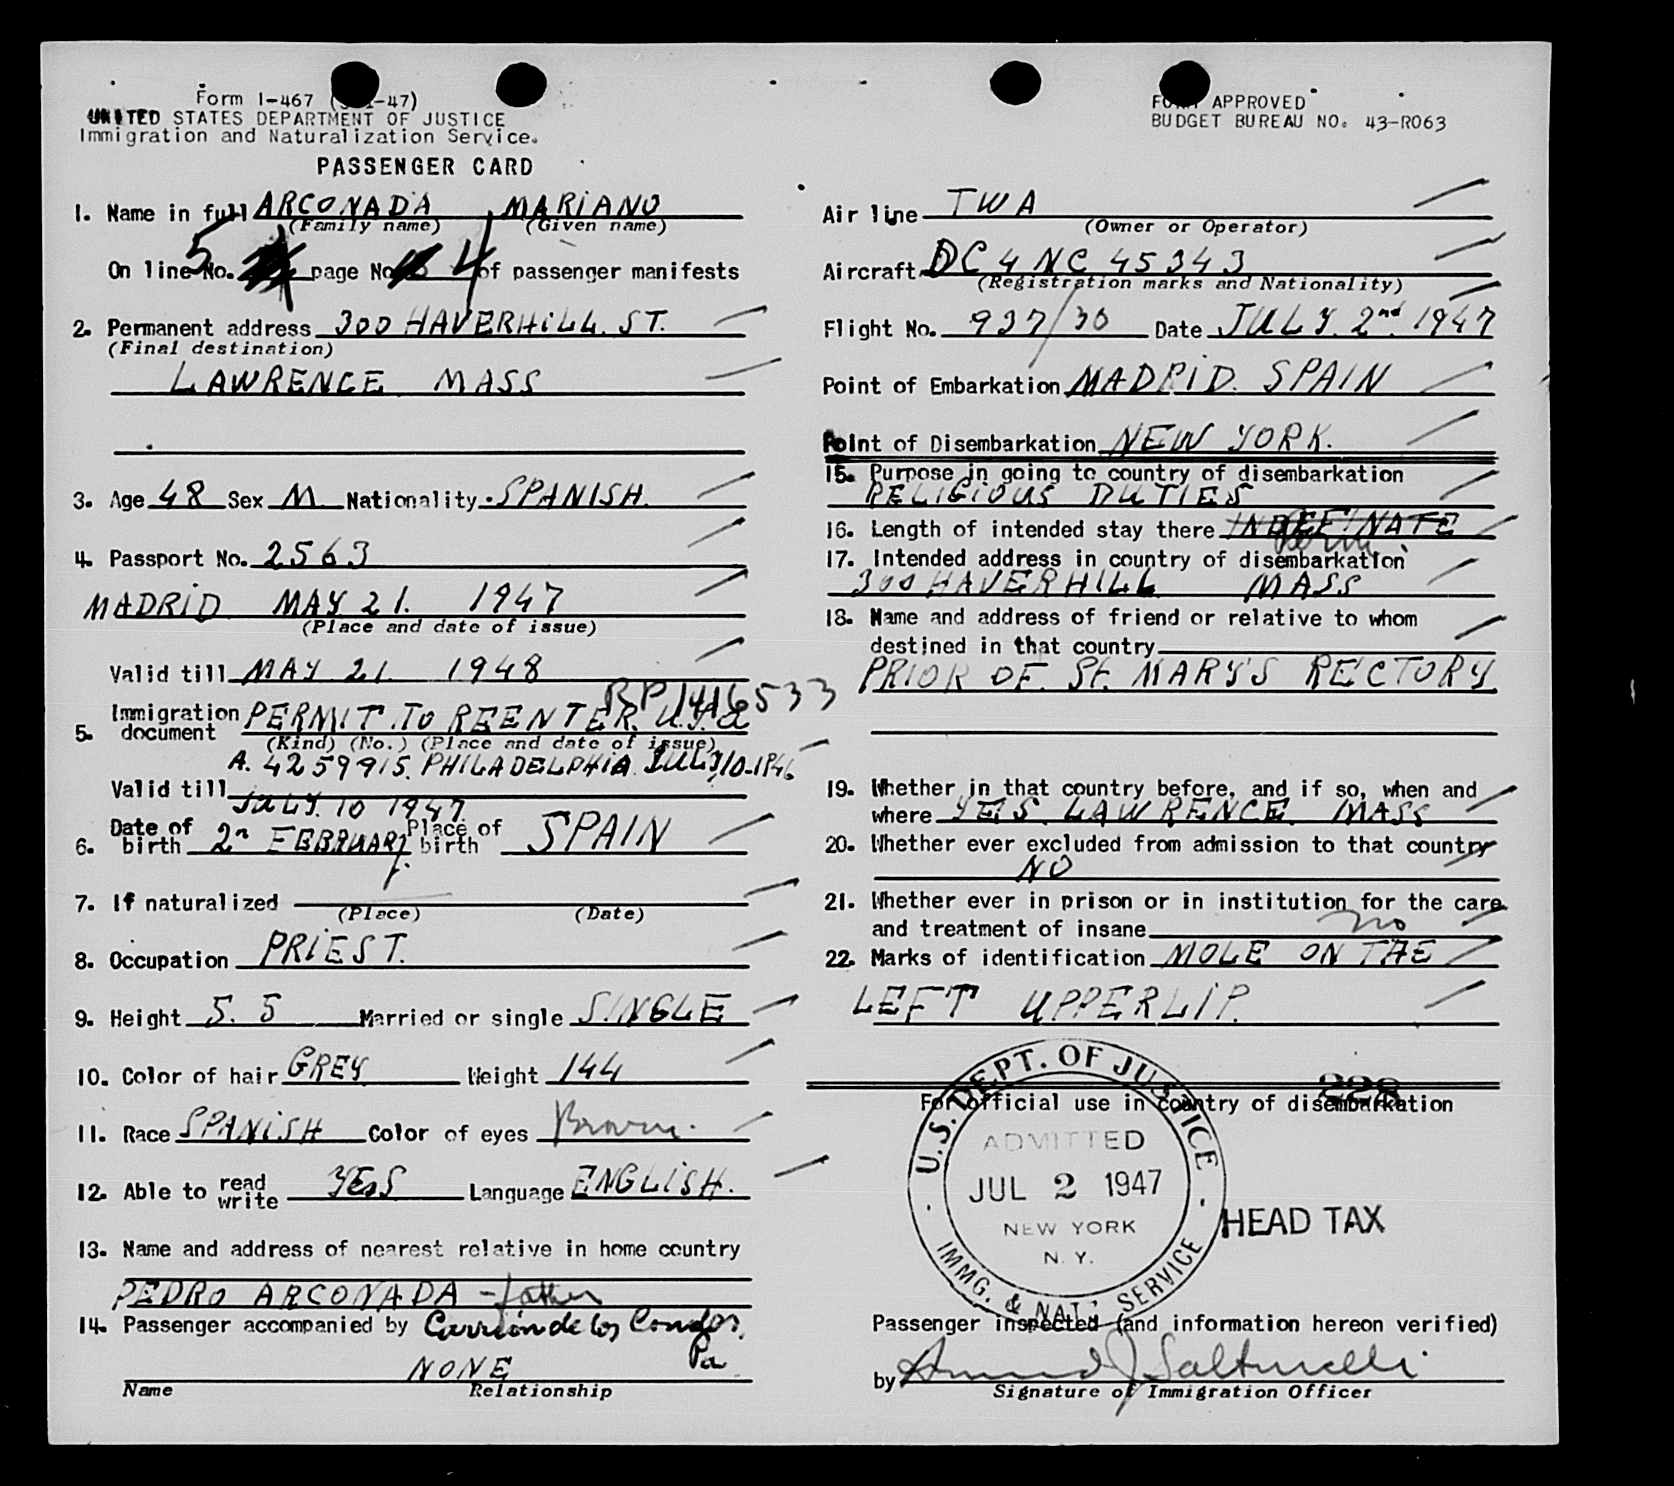 Form I-467 ( -47)
UNITED STATES DEPARTMENT OF JUSTICE
Immigration and Naturalization Service.
PASSENGER CARD
1. Name in full ARCONADA MARIANO
(Family name) (Given name)
On line No. 5 page No. 4 of passenger manifests
2. Permanent address 300 HAVERHILL. ST.
(Final destination)
LAWRENCE MASS
3. Age 48 Sex M. Nationality SPANISH.
4. Passport No. 2563
MADRID MAY 21. 1947
(Place and date of issue)
Valid till MAY 21. 1948
RP 1416533
5. Immigration document PERMIT. TO REENTER. U.S.a
(Kind) (No.) (Place and date of issue)
A. 4259915. PHILADELPHIA JULY 10-1946
Valid till JULY. 10 1947
6. Date of birth 2n FEBRUARY. Place of birth SPAIN
7. If naturalized
(Place) (Date)
8. Occupation PRIEST.
9. Height 5. 5 Married or single SINGLE
10. Color of hair GREY Weight 144
11. Race SPANISH Color of eyes Brown.
12. Able to read write YES Language ENGLISH.
13. Name and address of nearest relative in home country
PEDRO ARCONADA - father
14. Passenger accompanied by Carrión de los Condes,
Pa
NONE
Name Relationship
FORM APPROVED
BUDGET BUREAU NO. 43-R063
Air line TWA
(Owner or Operator)
Aircraft DC 4 NC 45343
(Registration marks and Nationality)
Flight No. 937/30 Date JULY. 2nd. 1947
Point of Embarkation MADRID. SPAIN
Point of Disembarkation NEW YORK.
15. Purpose in going to country of disembarkation
RELIGIOUS DUTIES
16. Length of intended stay there INDEFINATE
17. Intended address in country of disembarkation
300 HAVERHILL MASS
18. Name and address of friend or relative to whom
destined in that country
PRIOR OF. St. MARY'S RECTORY
19. Whether in that country before, and if so, when and
where YES. LAWRENCE. MASS
20. Whether ever excluded from admission to that country
NO
21. Whether ever in prison or in institution for the care
and treatment of insane no
22. Marks of identification MOLE ON THE
LEFT UPPERLIP.
228
For official use in country of disembarkation
U.S. DEPT. OF JUSTICE
ADMITTED
JUL 2 1947
NEW YORK
N.Y.
IMMG. & NAT. SERVICE
HEAD TAX
Passenger inspected (and information hereon verified)
by
Signature of Immigration Officer